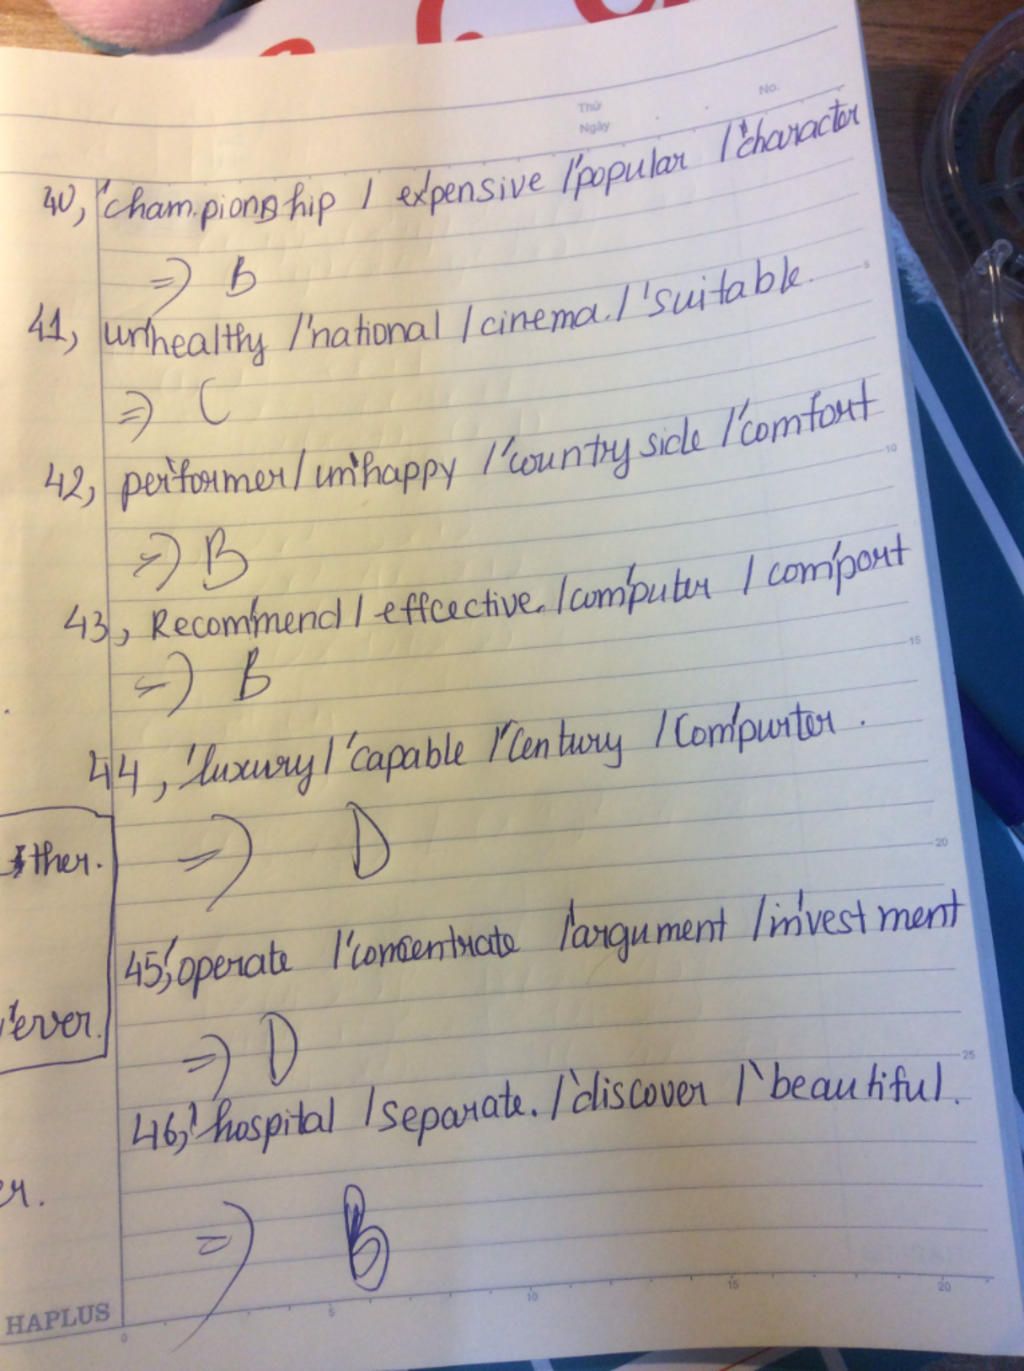 Thứ
Ngày
No.
40, 'championship / ex'pensive /'popular /'character
=> B
41, un'healthy /'national /cinema. /'suitable.
=> C
42, per'former/ un'happy /'country side /'comfort
=> B
43, Recom'mend / effcective. /com'puter / com'port
=> B
44, 'luxury/ 'capable /'century /Com'purter.
=> D
ther.
45,'operate /'concentrate /'argument /in'vest ment
'ever.
=> D
46,'hospital /separate. /'discover /'beautiful.
er.
=> B
HAPLUS